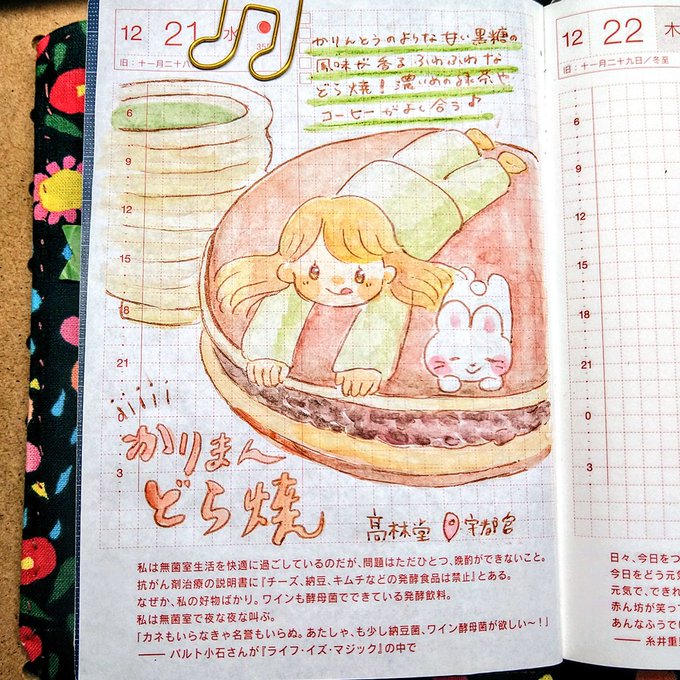 12 21 水
旧:十一月二十八
かりんとうのような甘い黒糖の
風味が香るふわふわな
どら焼!濃いめの抹茶や
コーヒーがよく合う♪
6
9
12
15
18
21
3
かりまん
どら焼
高林堂 宇都宮
私は無菌室生活を快適に過ごしているのだが、問題はただひとつ、晩酌ができないこと。
抗がん剤治療の説明書に『チーズ、納豆、キムチなどの発酵食品は禁止』とある。
なぜか、私の好物ばかり。ワインも酵母菌でできている発酵飲料。
私は無菌室で夜な夜な叫ぶ。
「カネもいらなきゃ名誉もいらぬ。あたしゃ、も少し納豆菌、ワイン酵母菌が欲しい〜!」
──バルト小石さんが『ライフ・イズ・マジック』の中で
12 22 木
旧:十一月二十九日/冬至
6
9
12
15
18
21
0
3
日々、今日をつ
今日をどう元気
元気で、できれ
赤ん坊が笑って
あんなふうで
──糸井重里